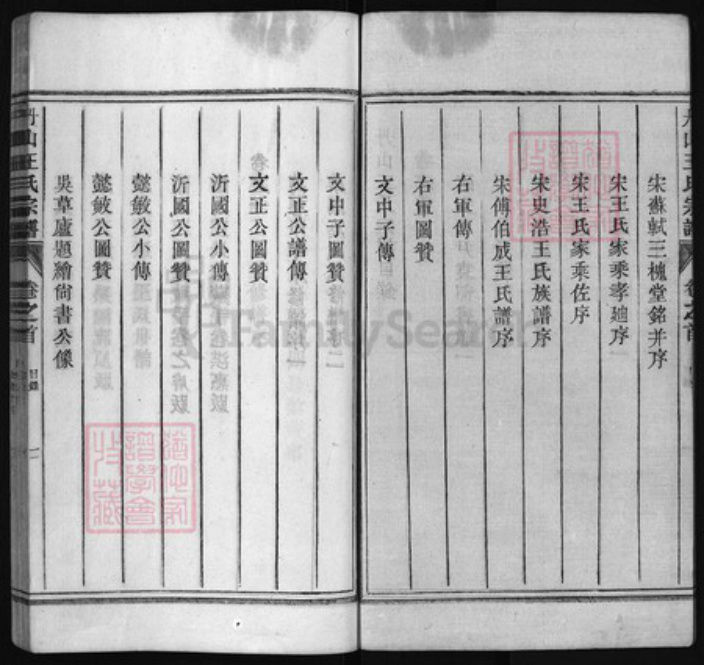 丹山王氏宗譜
卷之首
宋蘇軾三槐堂銘并序
宋王氏家乘孝廸序
宋王氏家乘佐序
宋史浩王氏族譜序
宋傅伯成王氏譜序
右軍傳
右軍圖贊
文中子傳
文中子圖贊
文正公譜傳
文正公圖贊
沂國公小傳
沂國公圖贊
懿敏公小傳
懿敏公圖贊
吳草廬題繪尙書公像
丹山王氏宗譜
卷之首
目錄
FamilySearch